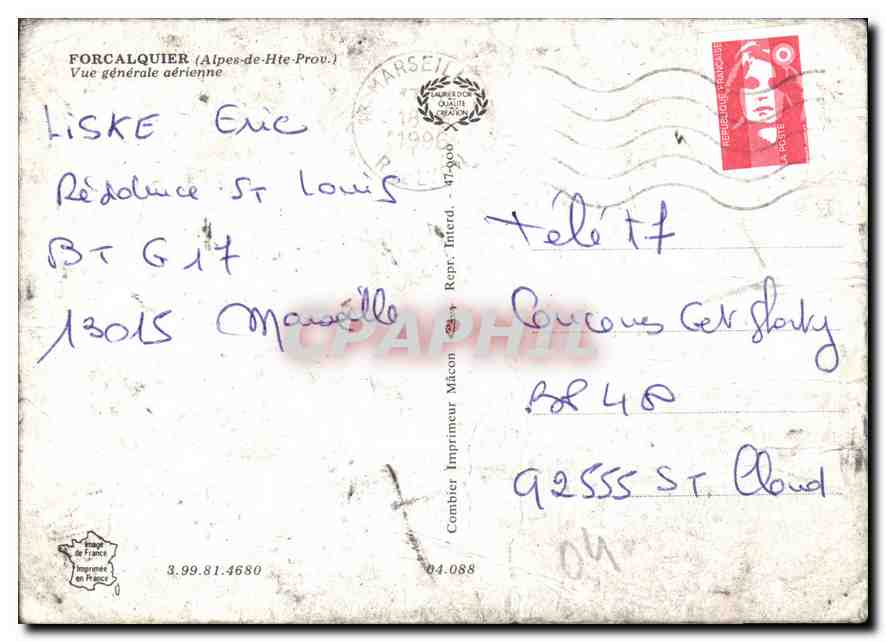 FORCALQUIER (Alpes-de-Hte-Prov.)
Vue générale aérienne
LISKE Eric
Résidence St Louis
BT G 17
13015 Marseille
MARSEIL
18
1996
LAURIER D'OR
QUALITÉ
CRÉATION
RÉPUBLIQUE FRANÇAISE
LA POSTE
Télé t7
Concours Get
BP 48
92555 ST. Cloud
04
Combier Imprimeur Mâcon Repr. Interd. - 47-000
CPAPHIL
Image
de France
Imprimée
en France
3.99.81.4680
04.088